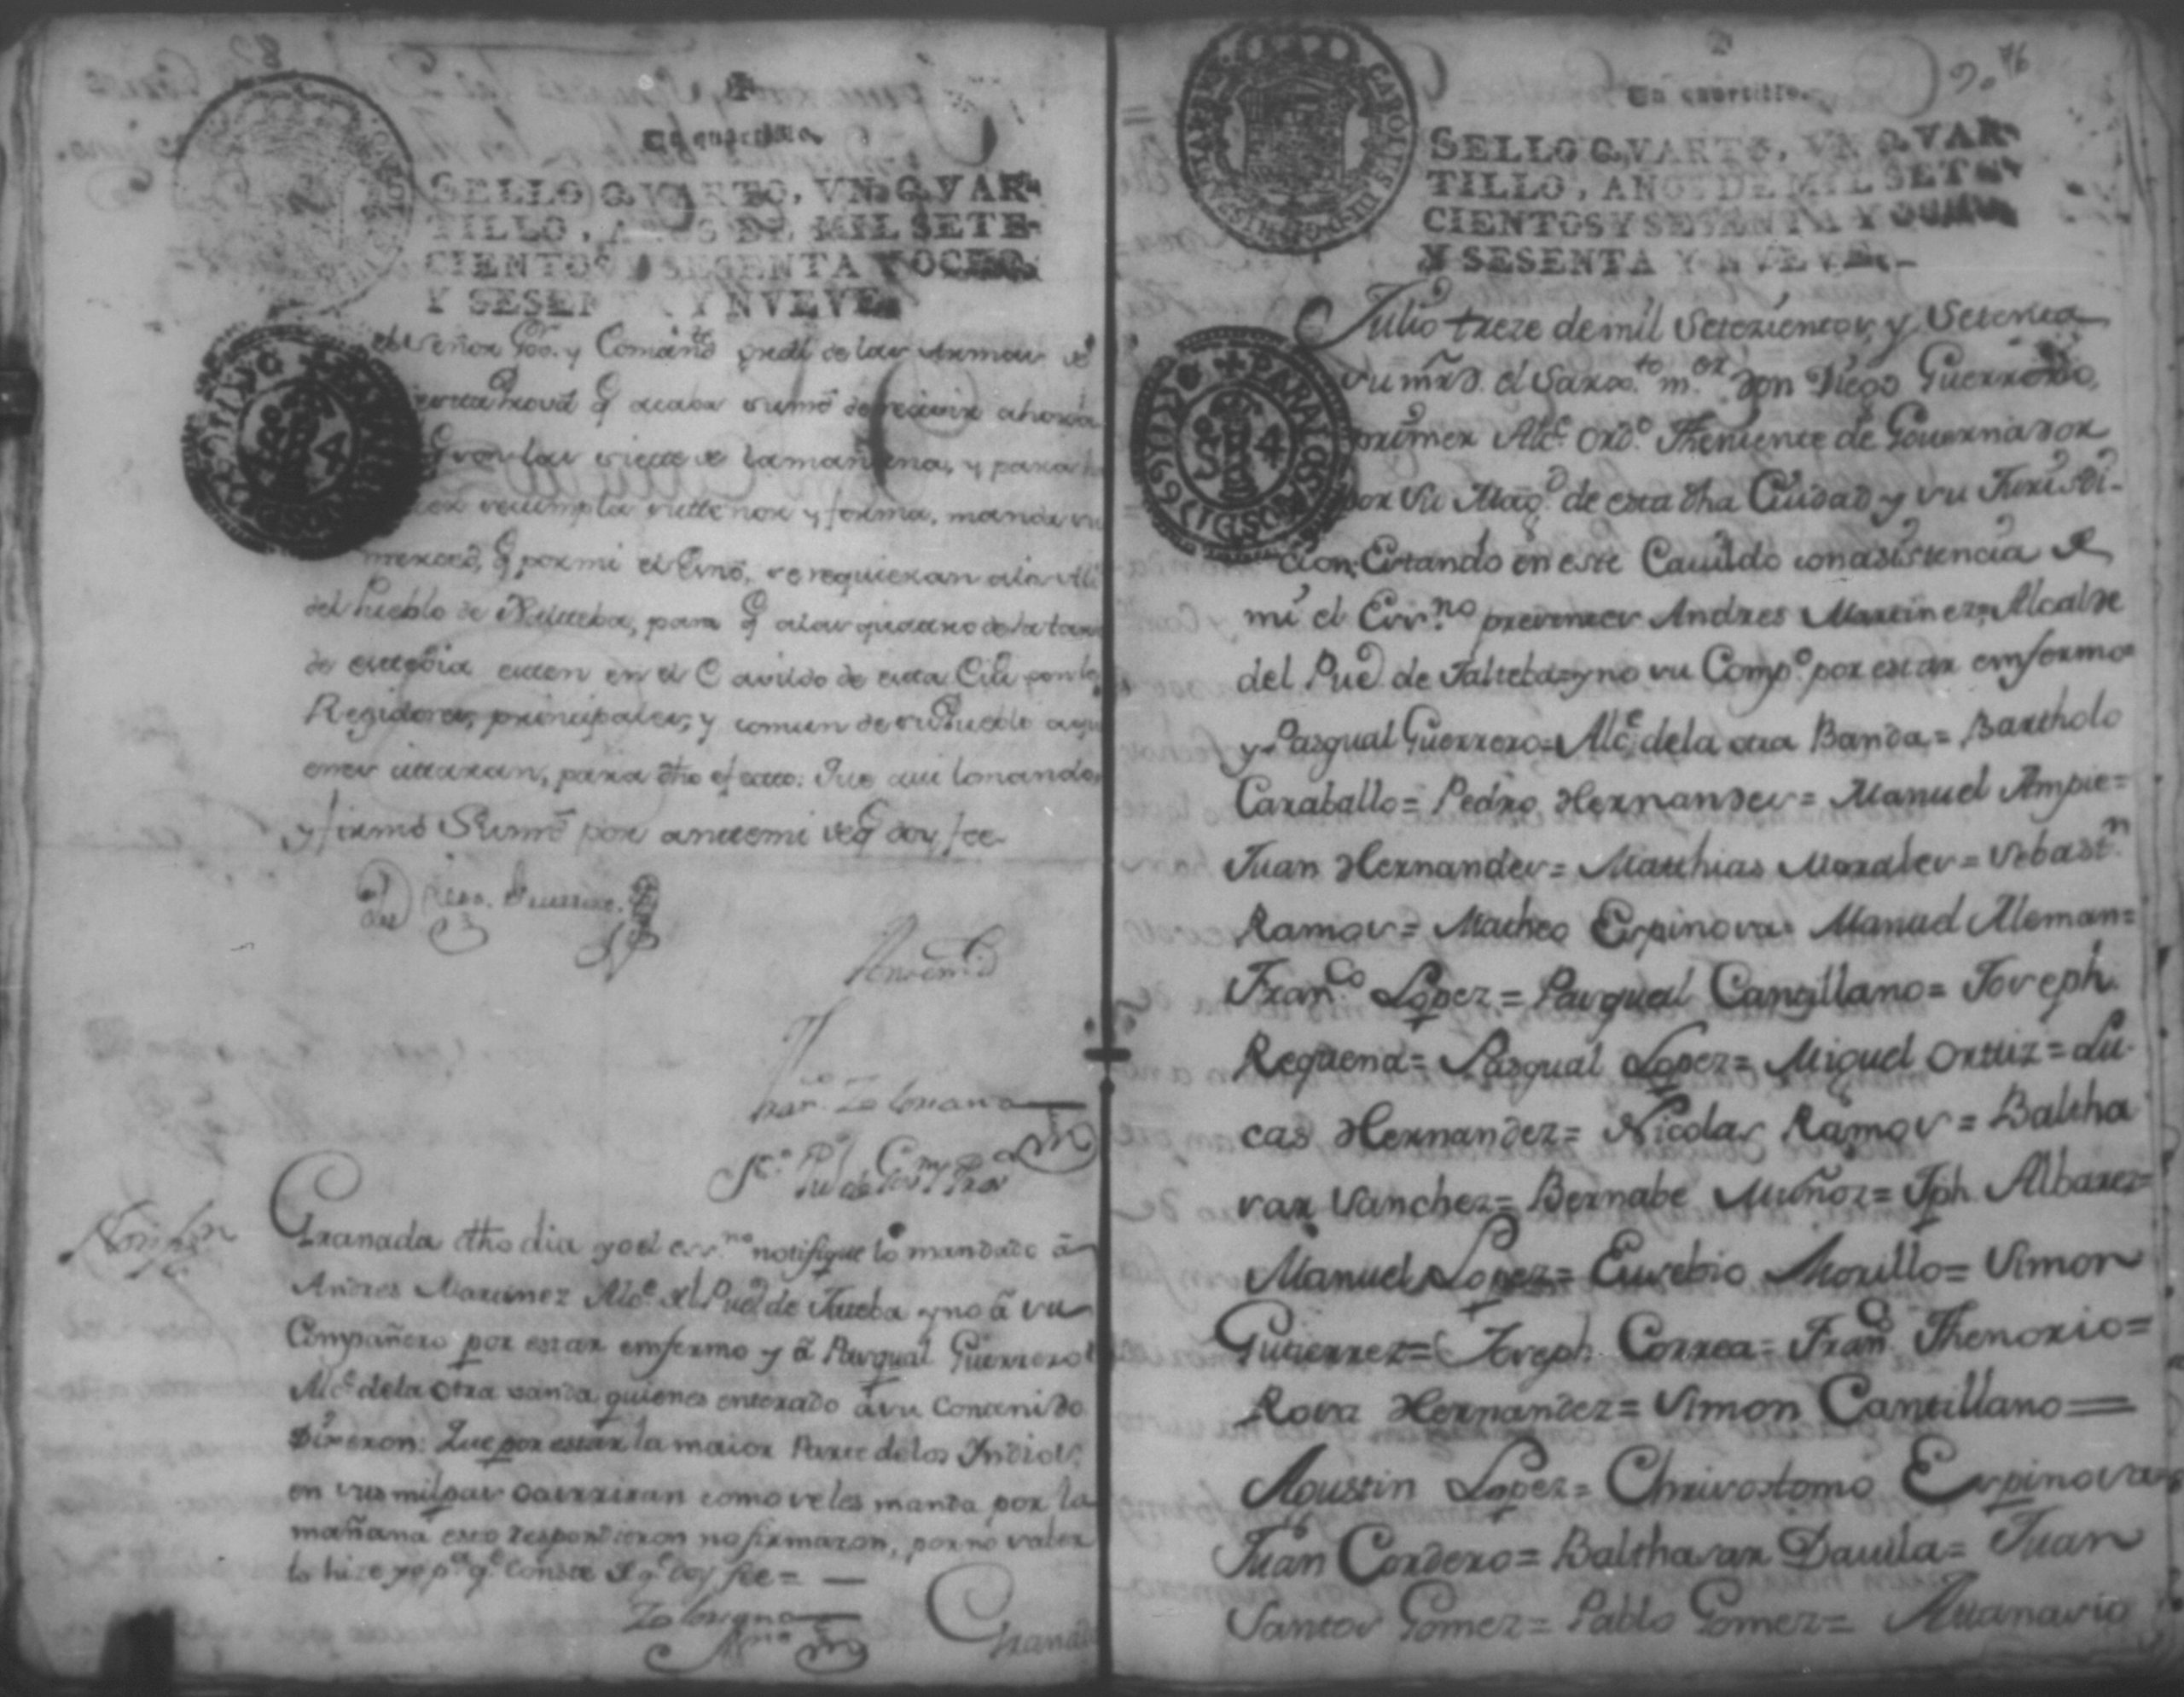 Un quartillo.
SELLO QVARTO, VN QVAR-
TILLO, AÑOS DE MIL SETE-
CIENTOS Y SESENTA Y OCHO,
Y SESENTA Y NVEVE.
el Señor Gov. y Comand.te gral de las Armas de
esta Prova q acaba sumd de recivir ahora
q son las siete de la mañana, y para
se cumpla su thenor y forma, manda su
merced, q por mi el Esno, se requieran a los Alcs
del Pueblo de Xalteba, para q a las quatro de la tarde
de este dia esten en el Cavildo de esta Ciu con los
Regidores, principales, y comun de su Pueblo
para dho efecto. Que asi lo mando,
y firmó Sumd por antemi de q doy fee.
Diego Guerrero.
Fran.co Zelorians
Notifon
Granada dho dia yo el ess.no notifique lo mandado â
Andres Martinez Alc.e del Pue.o de Jalteba y no â su
Compañero por estar emfermo y â Pasqual Guerrero
Alc.e de la otra vanda quienes enterado â su contenido
Dixeron: Que por estar la maior Parte de los Indios
en sus milpas ocurriran como se les manda por la
mañana esto respondieron no firmaron, por no saber
lo hize yo p.a q.e conste de q.e doy fee = —
Granada
9. 76
Un quartillo.
SELLO QVARTO, VN QVAR-
TILLO, AÑOS DE MIL SETE-
CIENTOS Y SESENTA Y OCHO,
Y SESENTA Y NVEVE.
CAROLUS III D G HISPANIAR
Julio treze de mil Setezientos, y Setenta
su mrd. el Sarg.to m.or Don Diego Guerrero,
primer Alc.e Ord.o Theniente de Governador
por Su Mag.d de esta dha Ciudad y su Jurisdi-
cion. Estando en este Cavildo con asistencia de
mi el Ess.no presentes Andres Martinez, Alcalde
del Pue.o de Jalteba = y no su Comp.o por estar emfermo =
y Pasqual Guerrero = Alc.e de la otra Banda = Bartholo
Caraballo = Pedro Hernandes = Manuel Ampie =
Juan Hernandes = Matthias Morales = Sebast.n
Ramos = Matheo Espinosa = Manuel Aleman =
Fran.co Lopez = Pasqual Cantillano = Joseph
Requena = Pasqual Lopez = Miguel Orttiz = Lu-
cas Hernandez = Nicolas Ramos = Baltha
sar Sanchez = Bernabe Muñoz = Jph Albarez =
Manuel Lopez = Eusebio Morillo = Simon
Gutierrez = Joseph Correa = Fran.co Thenorio =
Rosa Hernandez = Simon Cantillano =
Agustin Lopez = Chrisostomo Espinosa =
Juan Cordero = Balthasar Davila = Juan
Santos Gomez = Pablo Gomez = Attanasio